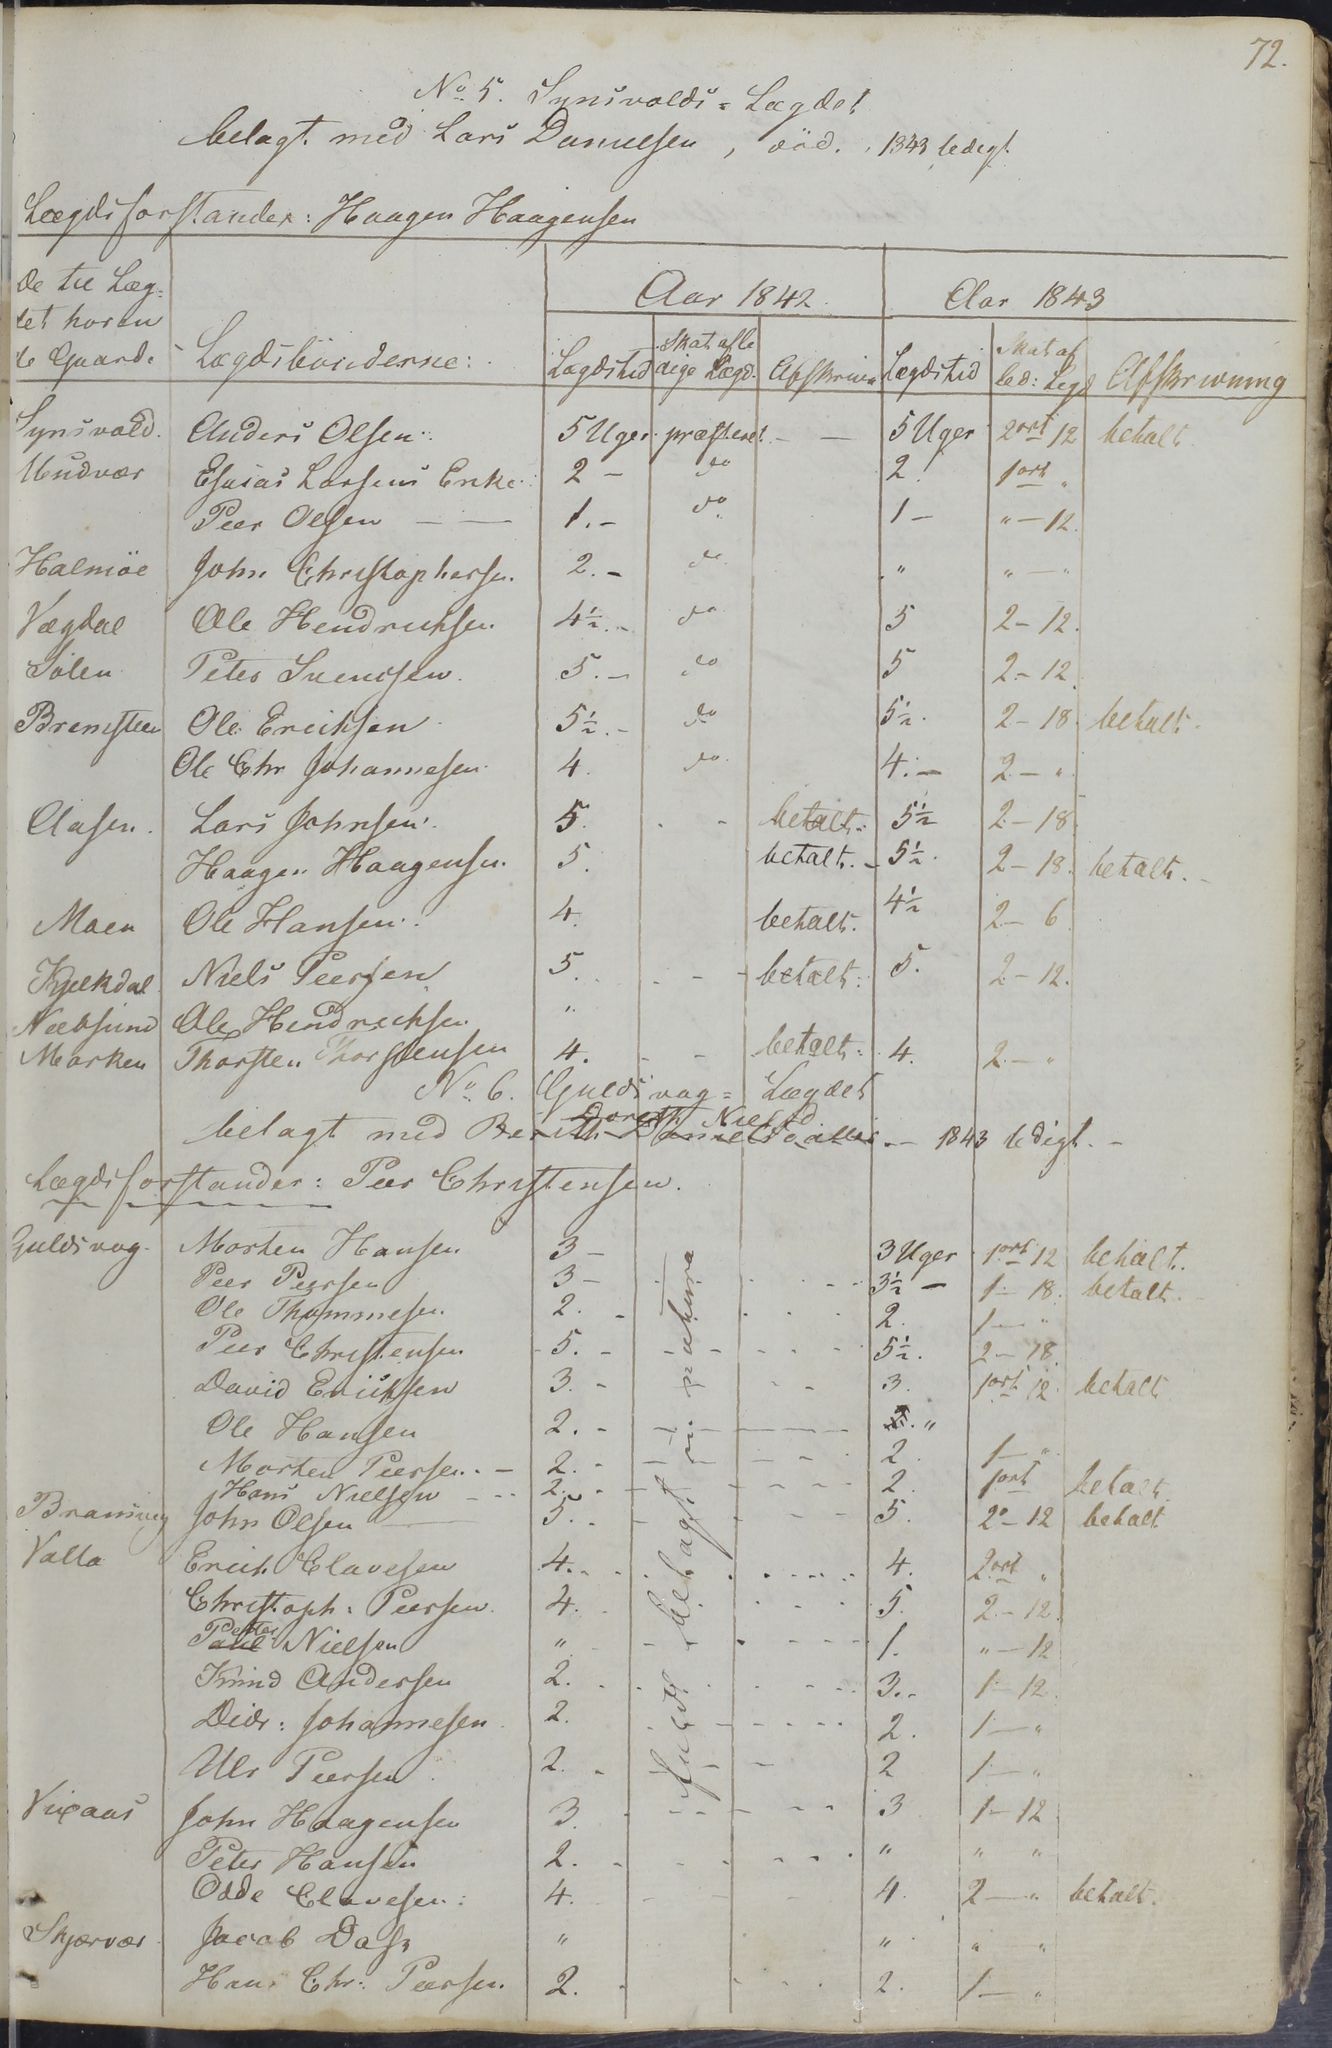 72.
No 5. Synsvolds=Lægdet
belagt med Lars Danielsen, död. 1843 ledigt.
Lægdsforstander: Haagen Haagensen
De til Læg=
det hören
de Gaarde
Lægdsbönderne:
Aar 1842
Aar 1843
Lægdstid
Skat afle
dige Lægd.
Afskrivn
Lægdstid
Skat af
led: Lægd
Afskrivning
Synsvold. Anders Olsen. 5 Uger. præsteret - - 5 Uger 2 ort 12 betalt
Undvær Esaias Larsens Enke. 2 - do 2. 1 ort "
Peer Olsen - - 1. - do 1 - " - 12.
Halmöe John Christophersen. 2. - do " " - "
Vægdal Ole Hendrichsen 4½. - do 5 2 - 12.
Solen Peter Svendsen. 5. - do 5 2 - 12.
Bremsteen Ole Erichsen 5½. - do 5½. 2 - 18 betalt.
Ole Chr Johannesen 4. do 4. - 2 - ".
Aasen. Lars Johnsen. 5. - - betalt. 5½ 2 - 18
Haagen Haagensen. 5. betalt. - 5½. 2 - 18. betalt. -
Moen Ole Hansen. 4. betalt. 4½ 2 - 6
Kjelkdal Niels Peersen 5. - - betalt. 5. 2 - 12.
Ole Hendrichsen "
Marken Thorsten Thorstensen 4. - - betalt. 4. 2 - "
No 6. Guldsvog=Lægdet
Doreth Nielsd
belagt med Berith - 1843 ledigt. -
Lægdsforstander: Peer Christensen.
Guldsvog. Morten Hansen 3 - 3 Uger 1 ort 12 betalt.
Peer Peersen 3 - 3½ - 1 - 18. betalt. -
Ole Thommesen. 2. - 2. 1 - "
Peer Christensen 5. - 5½. 2 - 18.
David Erichsen 3. - 3. 1 ort 12. betalt
Ole Hansen 2. - "
Morten Peersen. - 2. - 2 1 - ".
Hans Nielsen - - 2. - 2. 1 ort betalt.
John Olsen 5. - 5. 2 - 12 betalt
Valla Erich Clavesen 4. - 4. 2 ort "
Christoph: Peersen. 4. 5. 2 - 12.
Petter
Paul Nielsen " 1. " - 12
Knud Andersen 2. 3. - 1 - 12.
Didr: Johannesen. 2. 2. 1 - "
Ulr Peersen 2. - 2 1 - "
John Haagensen 3. 3 1 - 12
Peter Hansen 2. - " " "
Odde Clavesen: 4. 4. 2 - " betalt.
Skjærvær Jacob Dass " " " "
Hans Chr: Peersen. 2. 2. 1 - "
fuldt belagt in natura